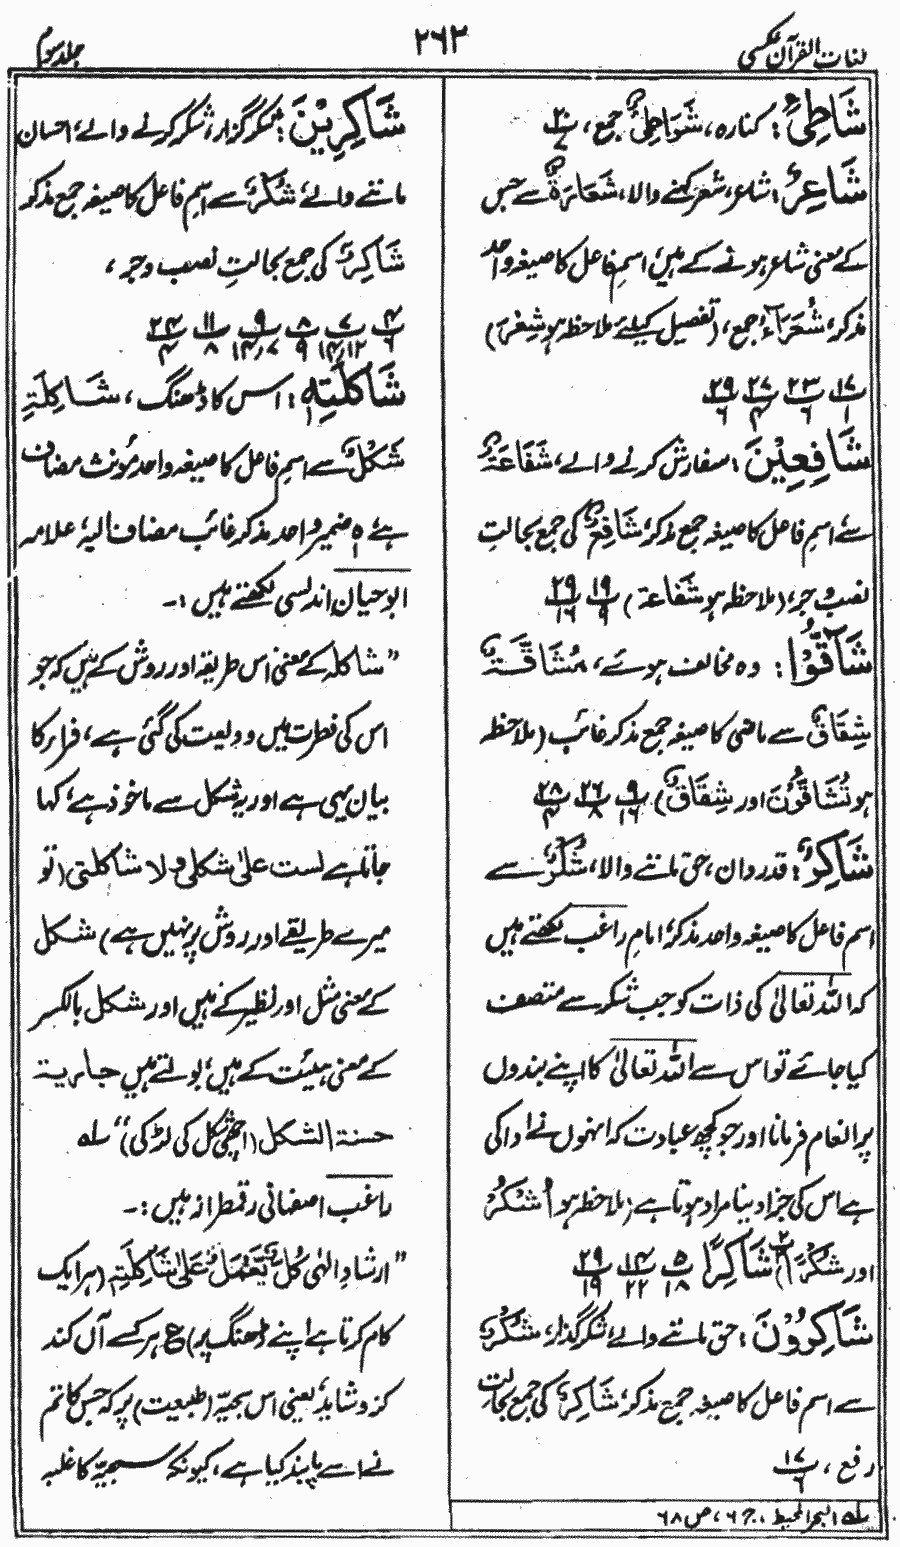 لغات القرآن عکسی
۲۶۳
جلد سوم
شَاطِیِٔ : کنارہ، شَوَاطِیُٔ جمع،
شَاعِرٌ : شاعر، شعر کہنے والا، شَعَارَۃٌ سے جس
کے معنی شاعر ہونے کے ہیں، اسم فاعل کا صیغہ واحد
مذکر، شُعَرَآءُ جمع، (تفصیل کیلئے ملاحظہ ہو شِعْرَ)
۱۷/۱ ۲۳/۶ ۲۷/۳ ۲۹/۶
شَافِعِیْنَ : سفارش کرنے والے، شَفَاعَۃٌ
سے اسم فاعل کا صیغہ جمع مذکر، شَافِعٌ کی جمع بحالتِ
نصب و جر، (ملاحظہ ہو شفاعۃ) ۱۹/۹ ۲۹/۱۶
شَآقُّوْا : وہ مخالف ہوئے، مُشَاقَّۃٌ
شِقَاقٌ سے ماضی کا صیغہ جمع مذکر غائب (ملاحظہ
ہو تُشَاقُّوْنَ اور شِقَاقٌ) ۹/۱۶ ۲۶/۸ ۲۸/۴
شَاکِرٌ : قدردان، حق ماننے والا، شُکْرٌ سے
اسم فاعل کا صیغہ واحد مذکر، امام راغب لکھتے ہیں
کہ اللہ تعالیٰ کی ذات کو جب شکر سے متصف
کیا جائے تو اس سے اللہ تعالیٰ کا اپنے بندوں
پر انعام فرمانا اور جو کچھ عبادت کہ انہوں نے ادا کی
ہے اس کی جزا دینا مراد ہوتا ہے (ملاحظہ ہو اُشْکُرْ
اور شُکْرٌ) شَاکِرًا ۵/۱۸ ۱۴/۲۲ ۲۹/۱۹
شَاکِرُوْنَ : حق ماننے والے، شکر گذار، شُکْرٌ
سے اسم فاعل کا صیغہ جمع مذکر، شَاکِرٌ کی جمع بحالت
رفع، ۱۷/۶
لہ البحر المحیط، ج ۶، ص ۶۸
شَاکِرِیْنَ : شکر گزار، شکر کرنے والے، احسان
ماننے والے، شُکْرٌ سے اسم فاعل کا صیغہ جمع مذکر
شَاکِرٌ کی جمع بحالتِ نصب و جر،
۴/۶ ۷/۱۴،۱۲ ۸/۹ ۹/۱۴،۷ ۱۱/۸ ۲۴/۴
شَاکِلَتِہٖ : اس کا ڈھنگ، شَاکِلَۃِ
شَکْلٌ سے اسم فاعل کا صیغہ واحد مؤنث مضاف
ہے، ہ ضمیر واحد مذکر غائب مضاف الیہ، علامہ
ابو حیان اندلسی لکھتے ہیں :۔
”شاکلہ کے معنی اس طریقہ اور روش کے ہیں کہ جو
اس کی فطرت میں ودیعت کی گئی ہے، فراء کا
بیان یہی ہے اور یہ شکل سے ماخوذ ہے، کہا
جاتا ہے لست علیٰ شکلی ولا شاکلتی (تو
میرے طریقے اور روش پر نہیں ہے) شکل
کے معنی مثل اور نظیر کے ہیں اور شکل بالکسر
کے معنی ہیئت کے ہیں، بولتے ہیں جاریۃ
حسنۃ الشکل (اچھی شکل کی لڑکی)“ لہ
راغب اصفہانی رقمطراز ہیں :۔
”ارشادِ الٰہی کُلٌّ یَّعْمَلُ عَلیٰ شَاکِلَتِہٖ (ہر ایک
کام کرتا ہے اپنے ڈھنگ پر) ع ہر کسے آں کند
کزو شاید، یعنی اس سجیّہ (طبعیت) پر کہ جس کا تم
نے اسے پابند کیا ہے، کیونکہ سجیّہ کا غلبہ